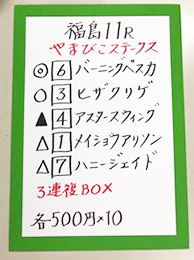 福島11R
やまびこステークス
◎ 6 バーニングペスカ
○ 3 ヒザクリゲ
▲ 4 アスタースウィング
△ 1 メイショウアリソン
△ 7 ハニージェイド
3連複BOX
各500円×10